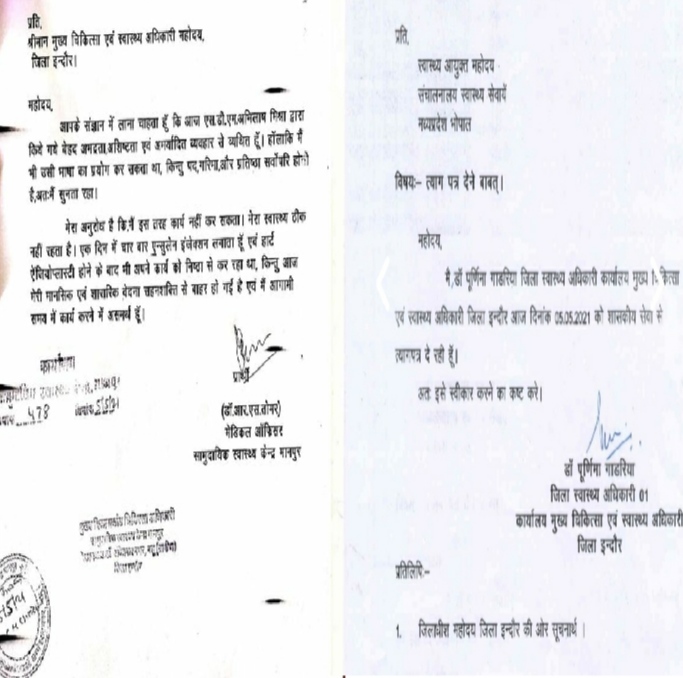 प्रति,
श्रीमान मुख्य चिकित्सा एवं स्वास्थ्य अधिकारी महोदय,
जिला इन्दौर।
महोदय,
आपके संज्ञान में लाना चाहता हूँ कि आज एस.डी.एम.अभिलाष मिश्रा द्वारा
किये गये बेहद अभद्रता,अशिष्टता एवं अमर्यादित व्यवहार से व्यथित हूँ। हॉलाकि मैं
भी उसी भाषा का प्रयोग कर सकता था, किन्तु पद,गरिमा,और प्रतिष्ठा सर्वोपरि होती
है,अतःमैं सुनता रहा।
मेरा अनुरोध है कि,मैं इस तरह कार्य नहीं कर सकता। मेरा स्वास्थ्य ठीक
नही रहता है। एक दिन में चार बार इन्सुलेन इंजेक्शन लगाता हूँ एवं हार्ट
ऐंजियोप्लास्टी होने के बाद भी अपने कार्य को निष्ठा से कर रहा था, किन्तु आज
मेरी मानसिक एवं शारारिक वेदना सहनशक्ति से बाहर हो गई है एवं मैं आगामी
समय में कार्य करने में असमर्थ हूँ।
कार्यालय
478
5/5/21
प्रार्थी
(डॉ.आर.एस.तोमर)
मेडिकल ऑफिसर
सामुदायिक स्वास्थ्य केन्द्र मानपुर
प्रति,
स्वास्थ्य आयुक्त महोदय
संचालनालय स्वास्थ्य सेवायें
मध्यप्रदेश भोपाल
विषयः– त्याग पत्र देने बाबत्।
महोदय,
मै,डॉ पूर्णिमा गाडरिया जिला स्वास्थ्य अधिकारी कार्यालय मुख्य चिकित्सा
एवं स्वास्थ्य अधिकारी जिला इन्दौर आज दिनांक 05.05.2021 को शासकीय सेवा से
त्यागपत्र दे रही हूँ।
अतः इसे स्वीकार करने का कष्ट करे।
डॉ पूर्णिमा गाडरिया
जिला स्वास्थ्य अधिकारी 01
कार्यालय मुख्य चिकित्सा एवं स्वास्थ्य अधिकारी
जिला इन्दौर
प्रतिलिपिः–
1. जिलाधीश महोदय जिला इन्दौर की ओर सूचनार्थ ।